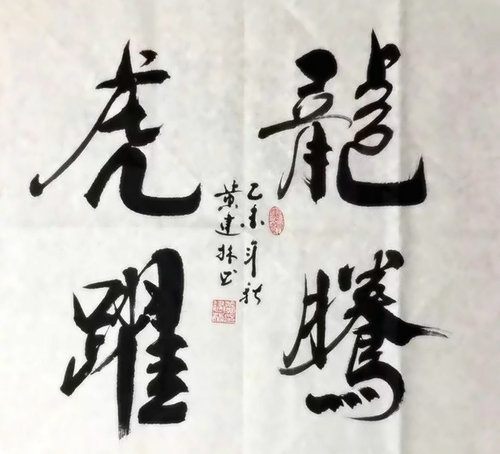 龍騰
虎躍
乙未年秋
黄建林书